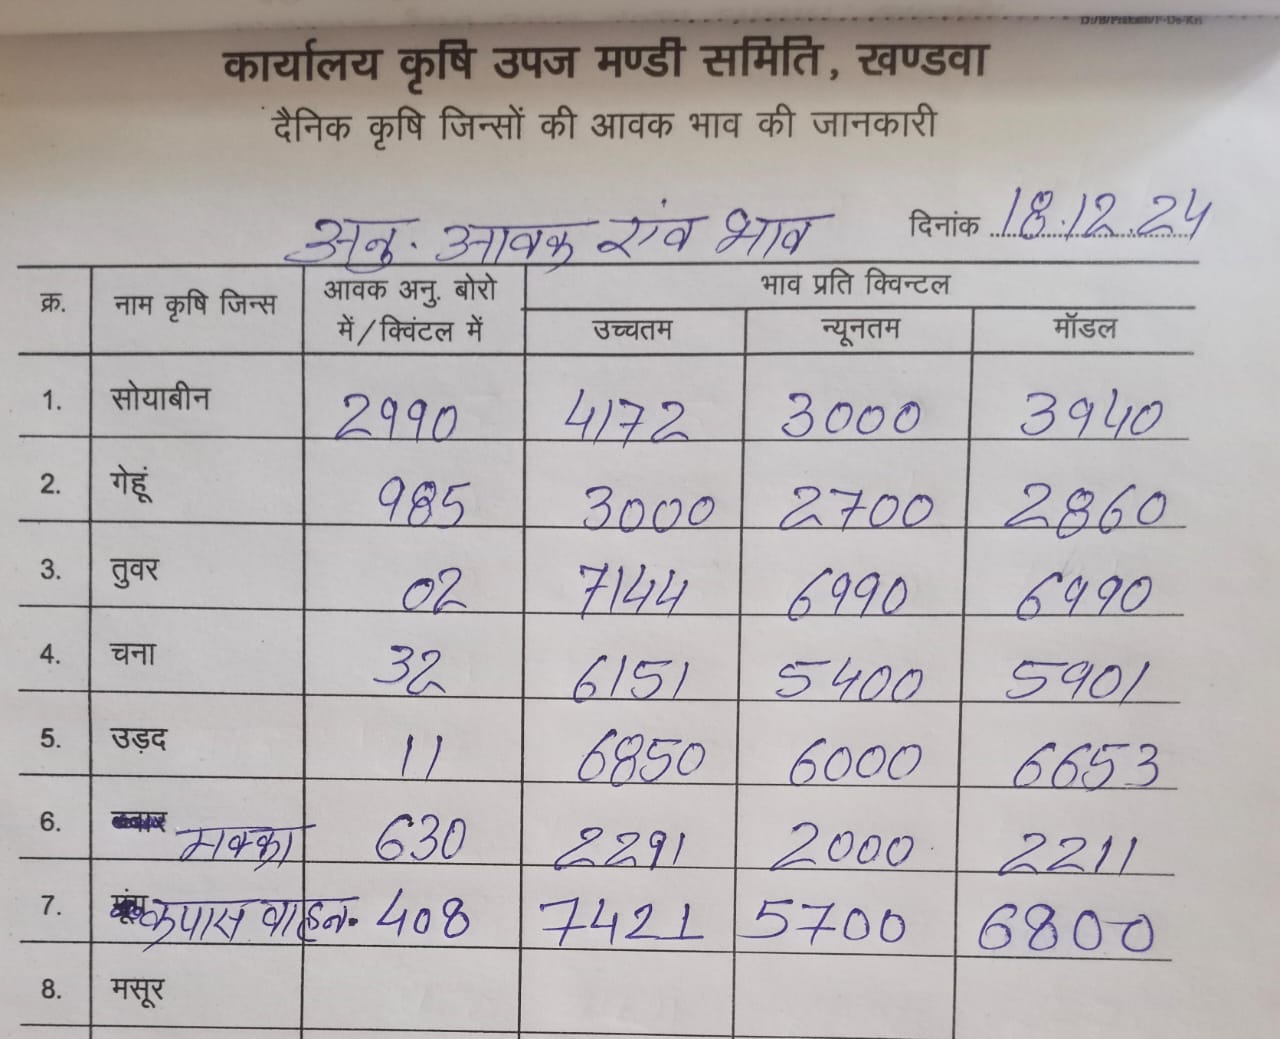 कार्यालय कृषि उपज मण्डी समिति, खण्डवा
दैनिक कृषि जिन्सों की आवक भाव की जानकारी
अनु. आवक एंव भाव दिनांक 18.12.24
क्र. नाम कृषि जिन्स आवक अनु. बोरो में/क्विंटल में भाव प्रति क्विन्टल
उच्चतम न्यूनतम मॉडल
1. सोयाबीन 2990 4172 3000 3940
2. गेहूं 985 3000 2700 2860
3. तुवर 02 7144 6990 6990
4. चना 32 6151 5400 5901
5. उड़द 11 6850 6000 6653
6. मक्का 630 2291 2000 2211
7. कपास वाहन. 408 7421 5700 6800
8. मसूर